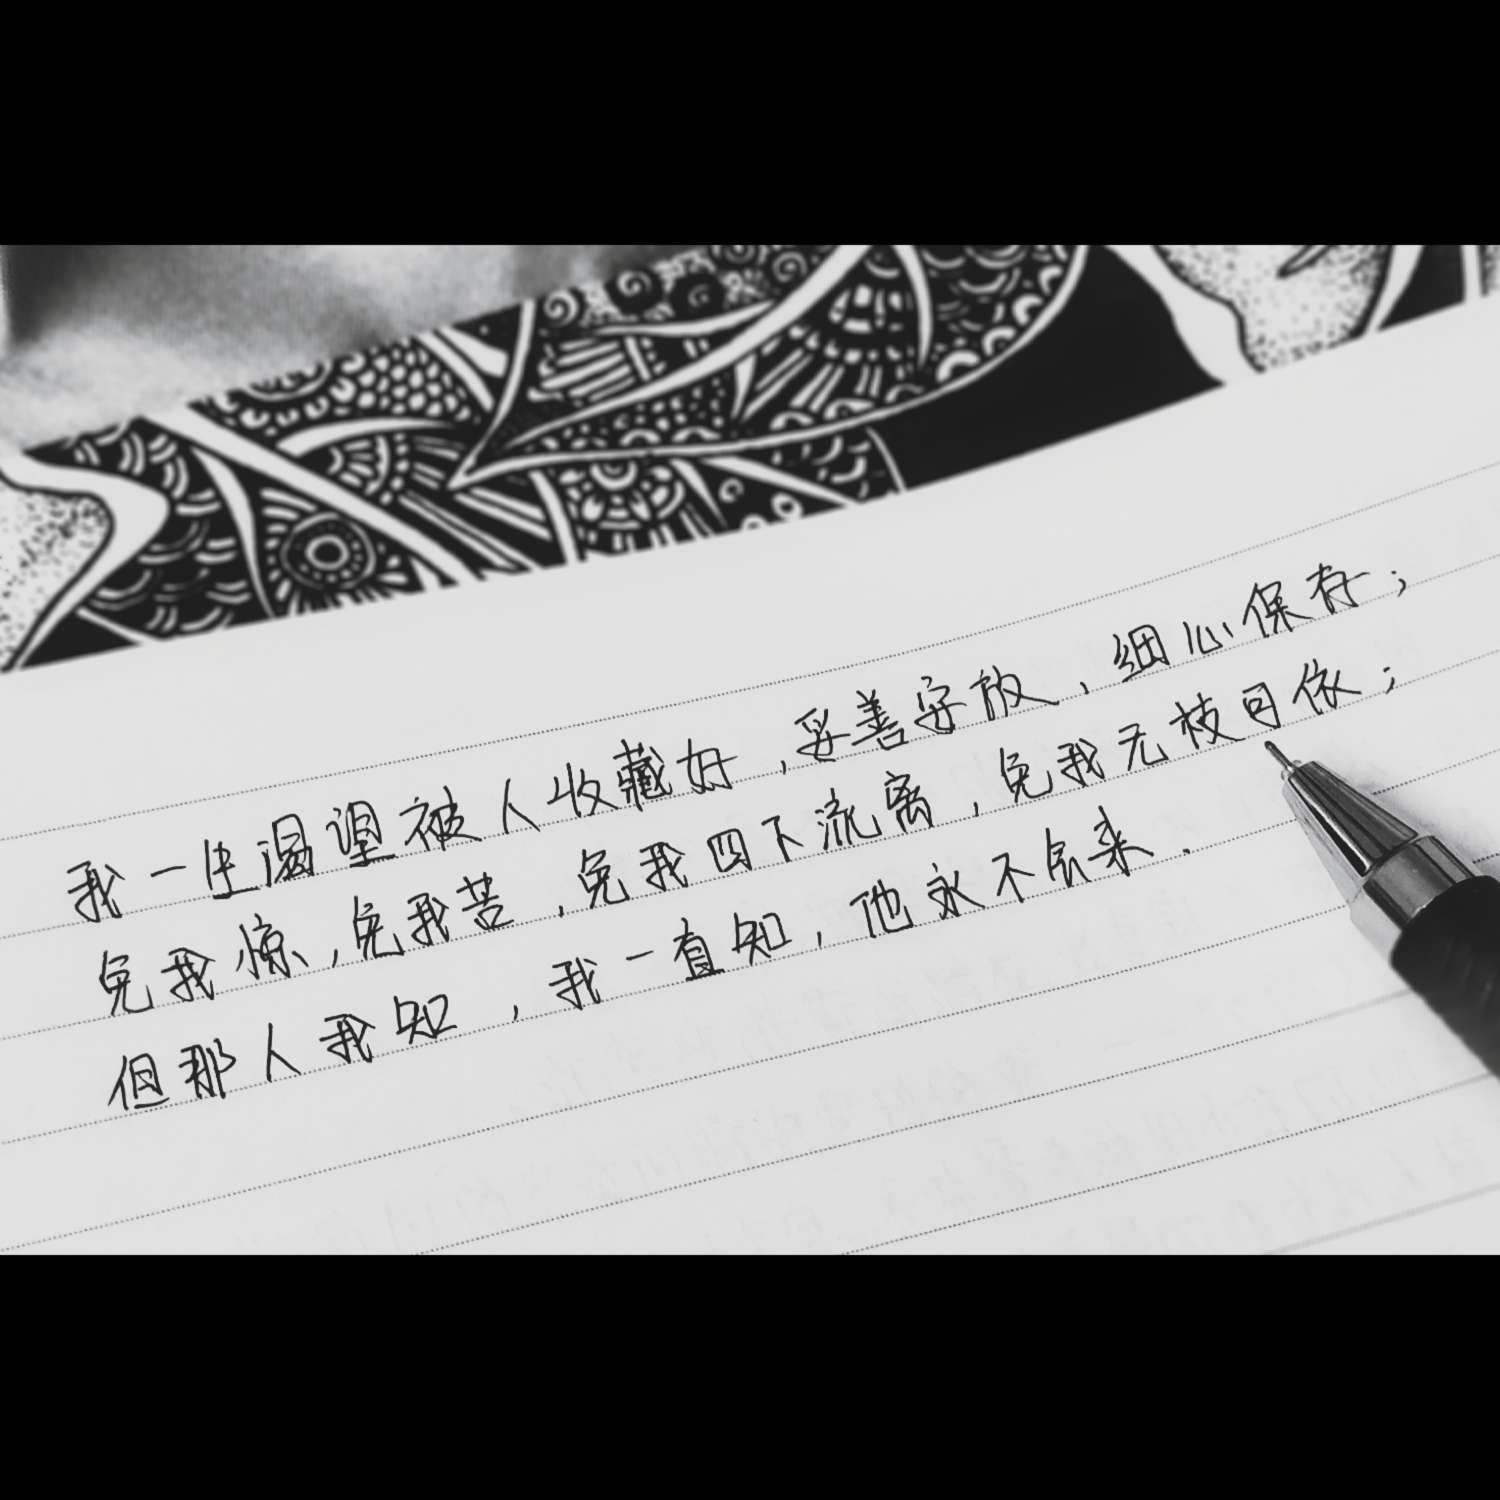 我一生渴望被人收藏好，妥善安放，细心保存；
免我惊，免我苦，免我四下流离，免我无枝可依；
但那人我知，我一直知，他永不会来．